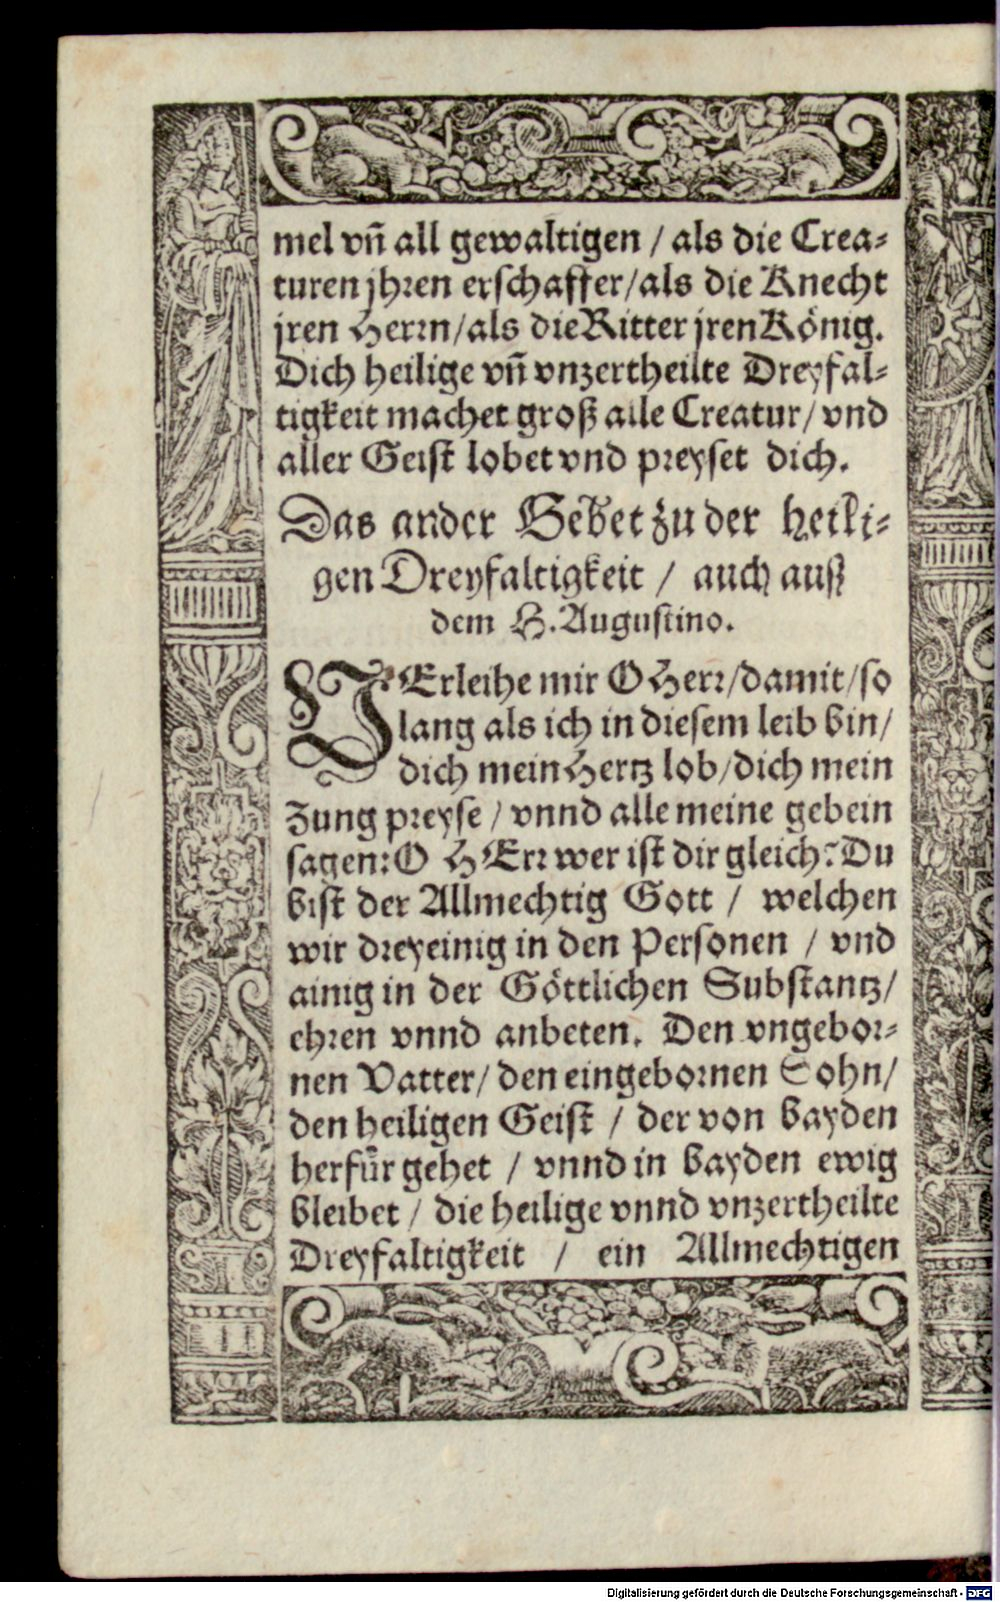 mel vn̄ all gewaltigen / als die Crea⸗
turen jhren erschaffer/als die Knecht
jren Herrn/als die Ritter jren König.
Dich heilige vn̄ vnzertheilte Dreyfal⸗
tigkeit machet groß alle Creatur/ vnd
aller Geist lobet vnd preyset dich.
Das ander Gebet zu der heili⸗
gen Dreyfaltigkeit / auch auß
dem H. Augustino.
VErleihe mir O Herr/damit/so
lang als ich in diesem leib bin/
dich mein Hertz lob/dich mein
Zung preyse / vnnd alle meine gebein
sagen: O HErr wer ist dir gleich? Du
bist der Allmechtig Gott / welchen
wir dreyeinig in den Personen / vnd
ainig in der Göttlichen Substantz/
ehren vnnd anbeten. Den vngebor⸗
nen Vatter/ den eingebornen Sohn/
den heiligen Geist / der von bayden
herfür gehet / vnnd in bayden ewig
bleibet / die heilige vnnd vnzertheilte
Dreyfaltigkeit / ein Allmechtigen
Digitalisierung gefördert durch die Deutsche Forschungsgemeinschaft - DFG